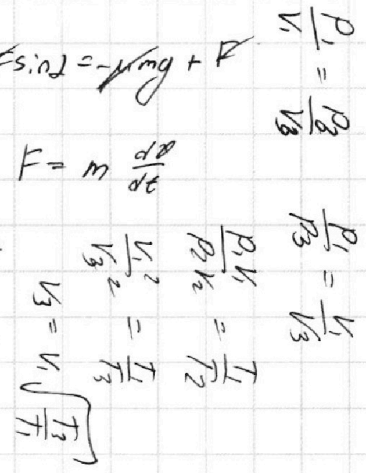 Fsinα = -μmg + F
F = m dv/dt
P₁/V₁ = P₃/V₃  P₁/P₃ = V₁/V₃
P₁V₁/P₂V₂ = T₁/T₂
V₁²/V₃² = T₁/T₃
V₃ = V₁√(T₃/T₁)